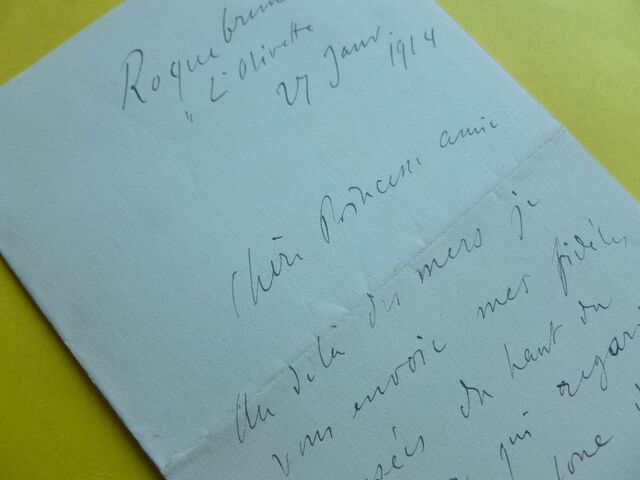 Roquebrune
"L'Olivette
27 Janv. 1914
Chère Princesse amie
Au delà des mers je
vous envoie mes fidèles
du haut du
qui regar